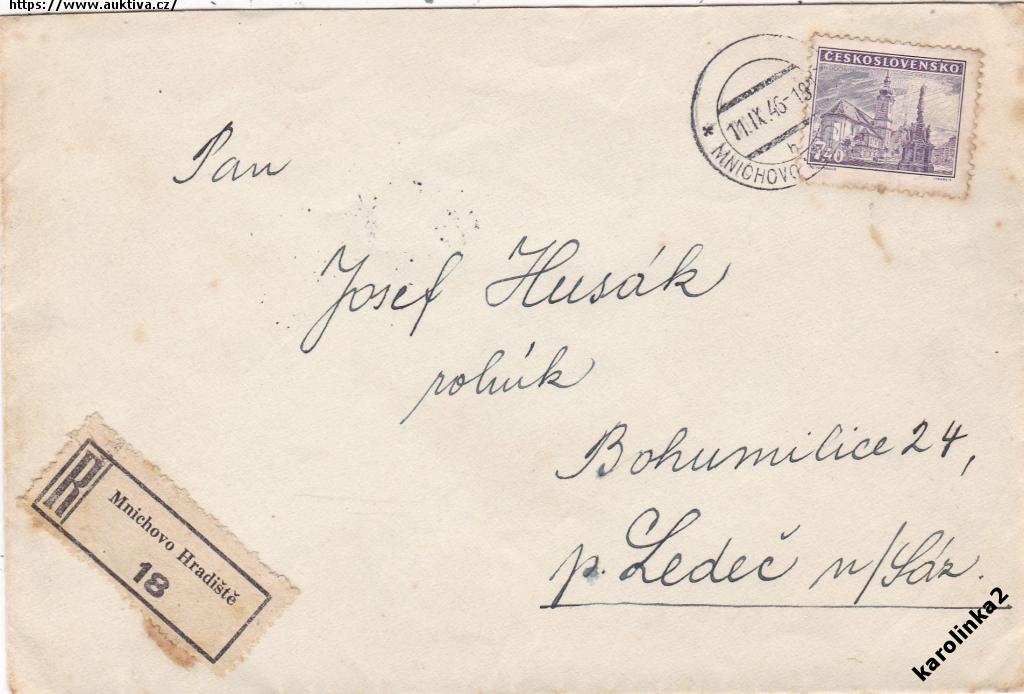 https://www.auktiva.cz/
ČESKOSLOVENSKO
7.40
11.IX.46-18
* MNICHOVO
Pan
Josef Husák
rolník
Bohumilice 24,
p. Ledeč n/Sáz.
R
Mnichovo Hradiště
18
karolinka2